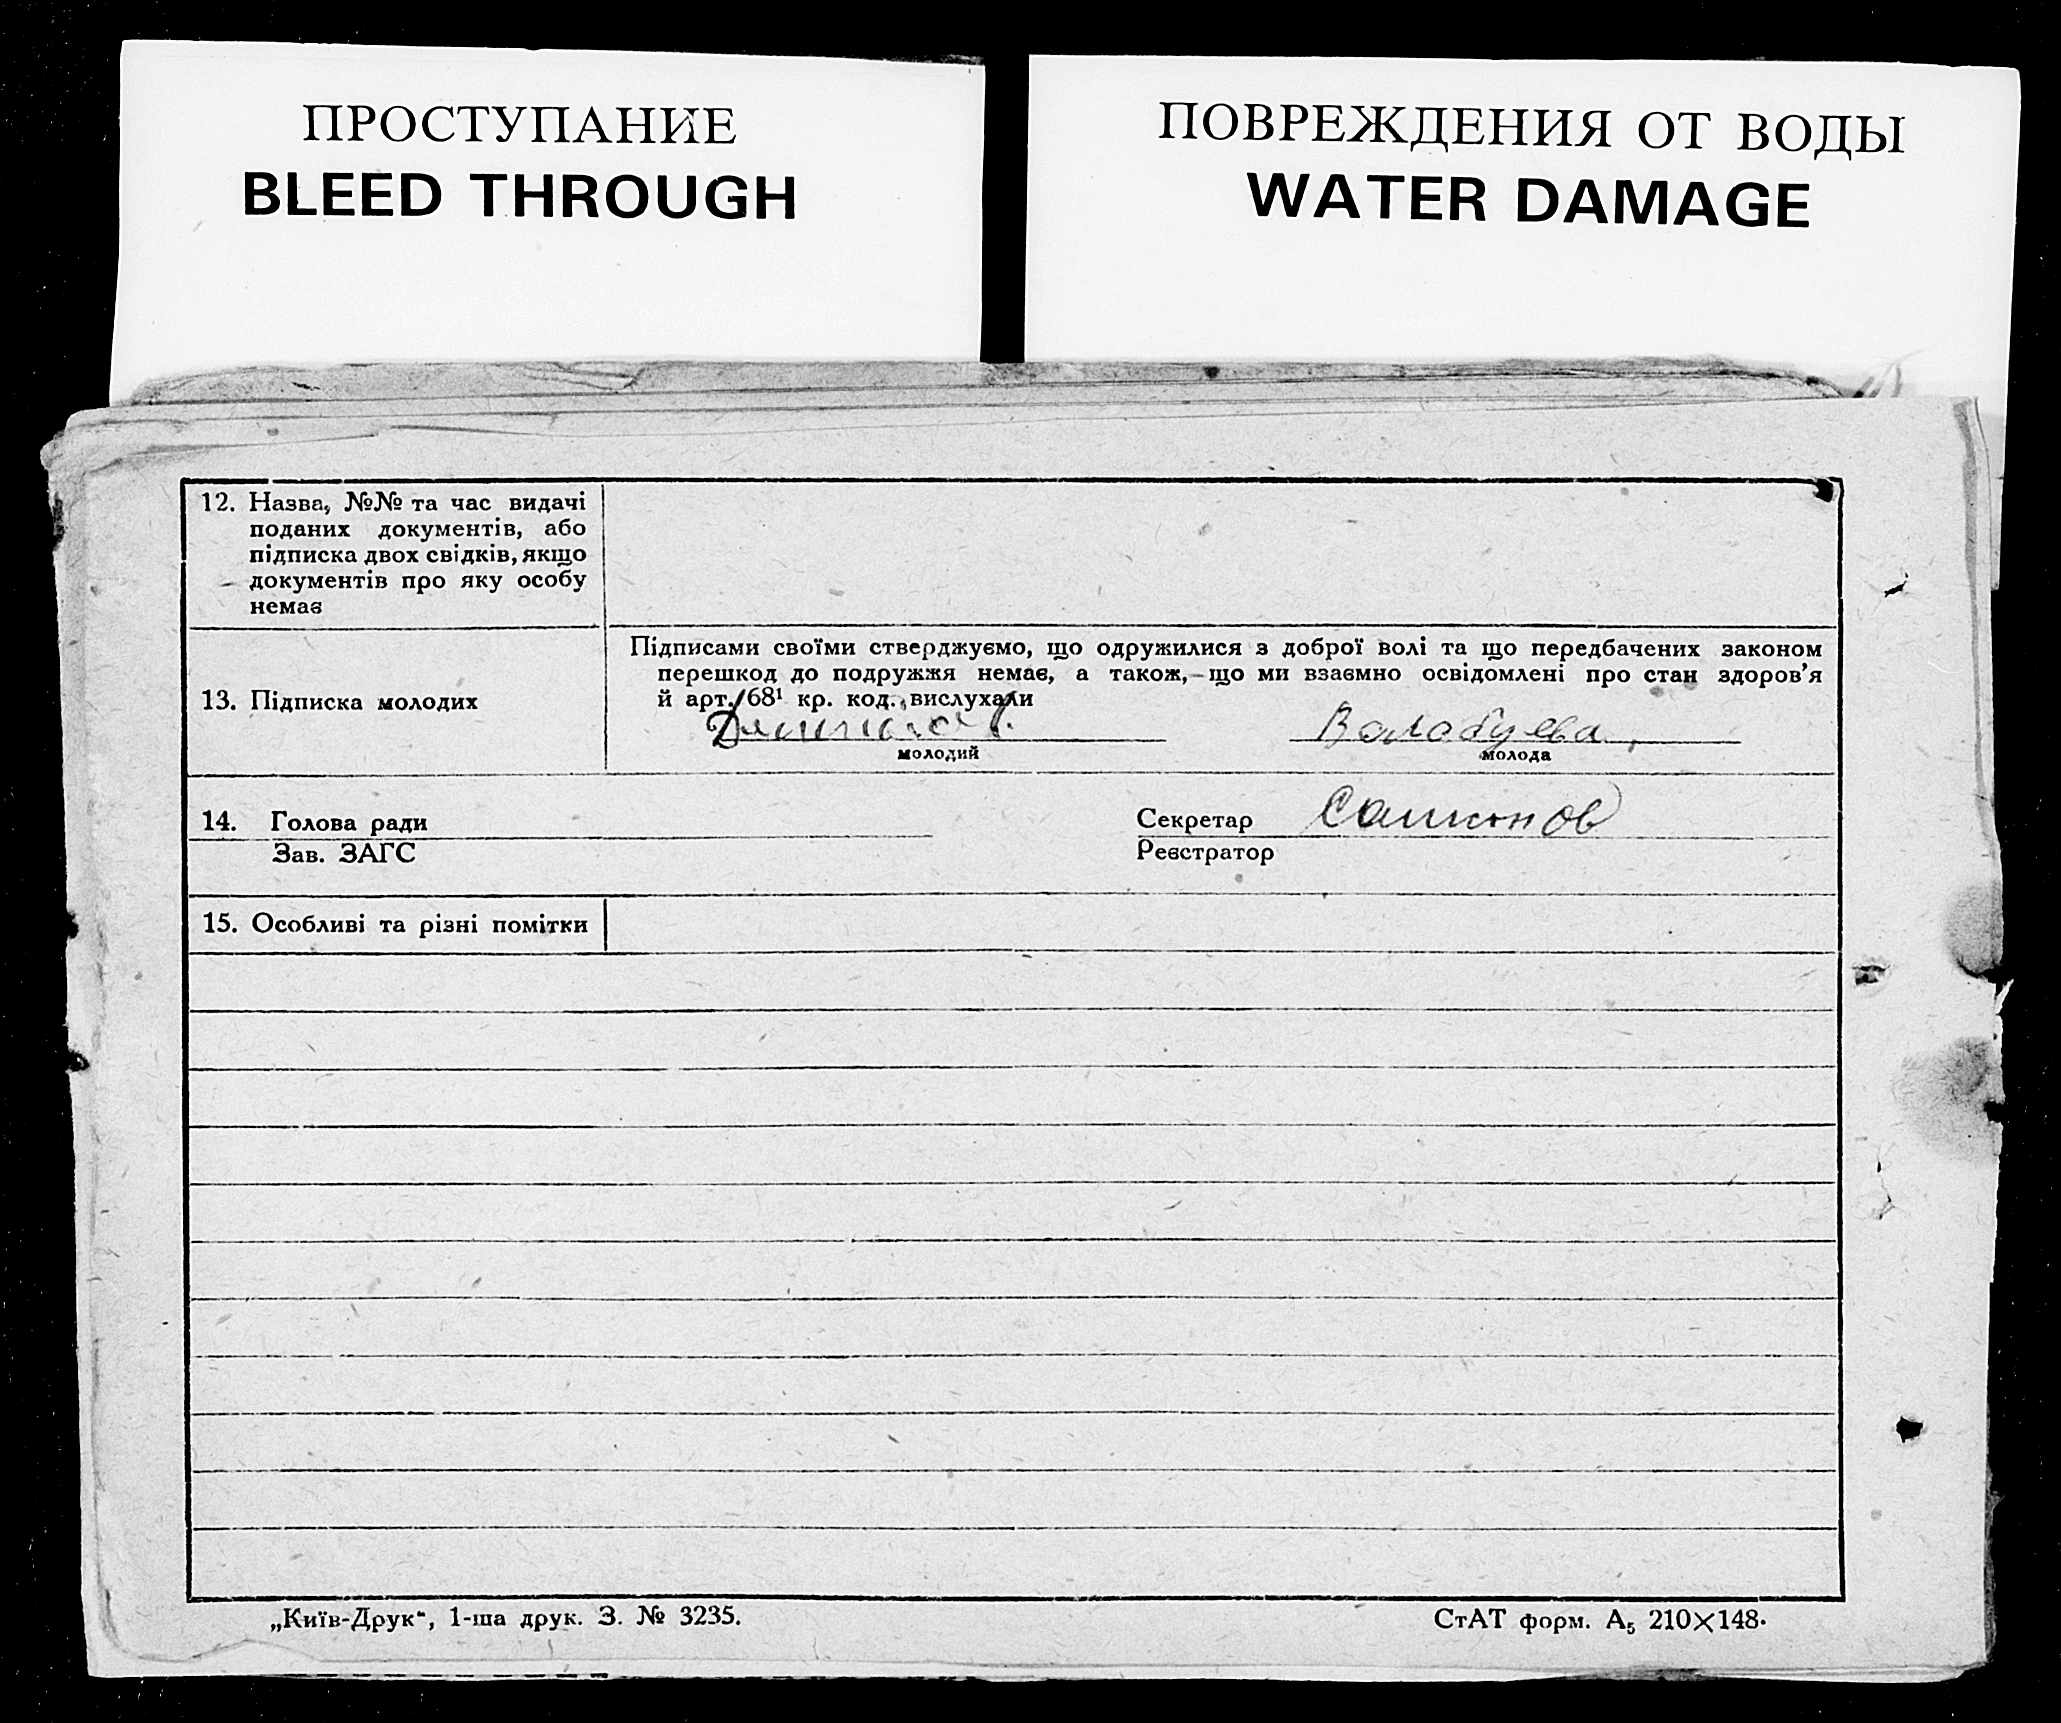 ПРОСТУПАНИЕ
BLEED THROUGH
ПОВРЕЖДЕНИЯ ОТ ВОДЫ
WATER DAMAGE
12. Назва, №№ та час видачі
поданих документів, або
підписка двох свідків, якщо
документів про яку особу
немає
13. Підписка молодих
Підписами своїми стверджуємо, що одружилися з доброї волі та що передбачених законом
перешкод до подружжя немає, а також, що ми взаємно освідомлені про стан здоров'я
й арт. 68¹ кр. код. вислухали
Валабуева
молодий
молода
14. Голова ради
Зав. ЗАГС
Секретар Самсонов
Реєстратор
15. Особливі та різні помітки
„Київ-Друк“, 1-ша друк. З. № 3235.
СтАТ форм. А₅ 210×148.